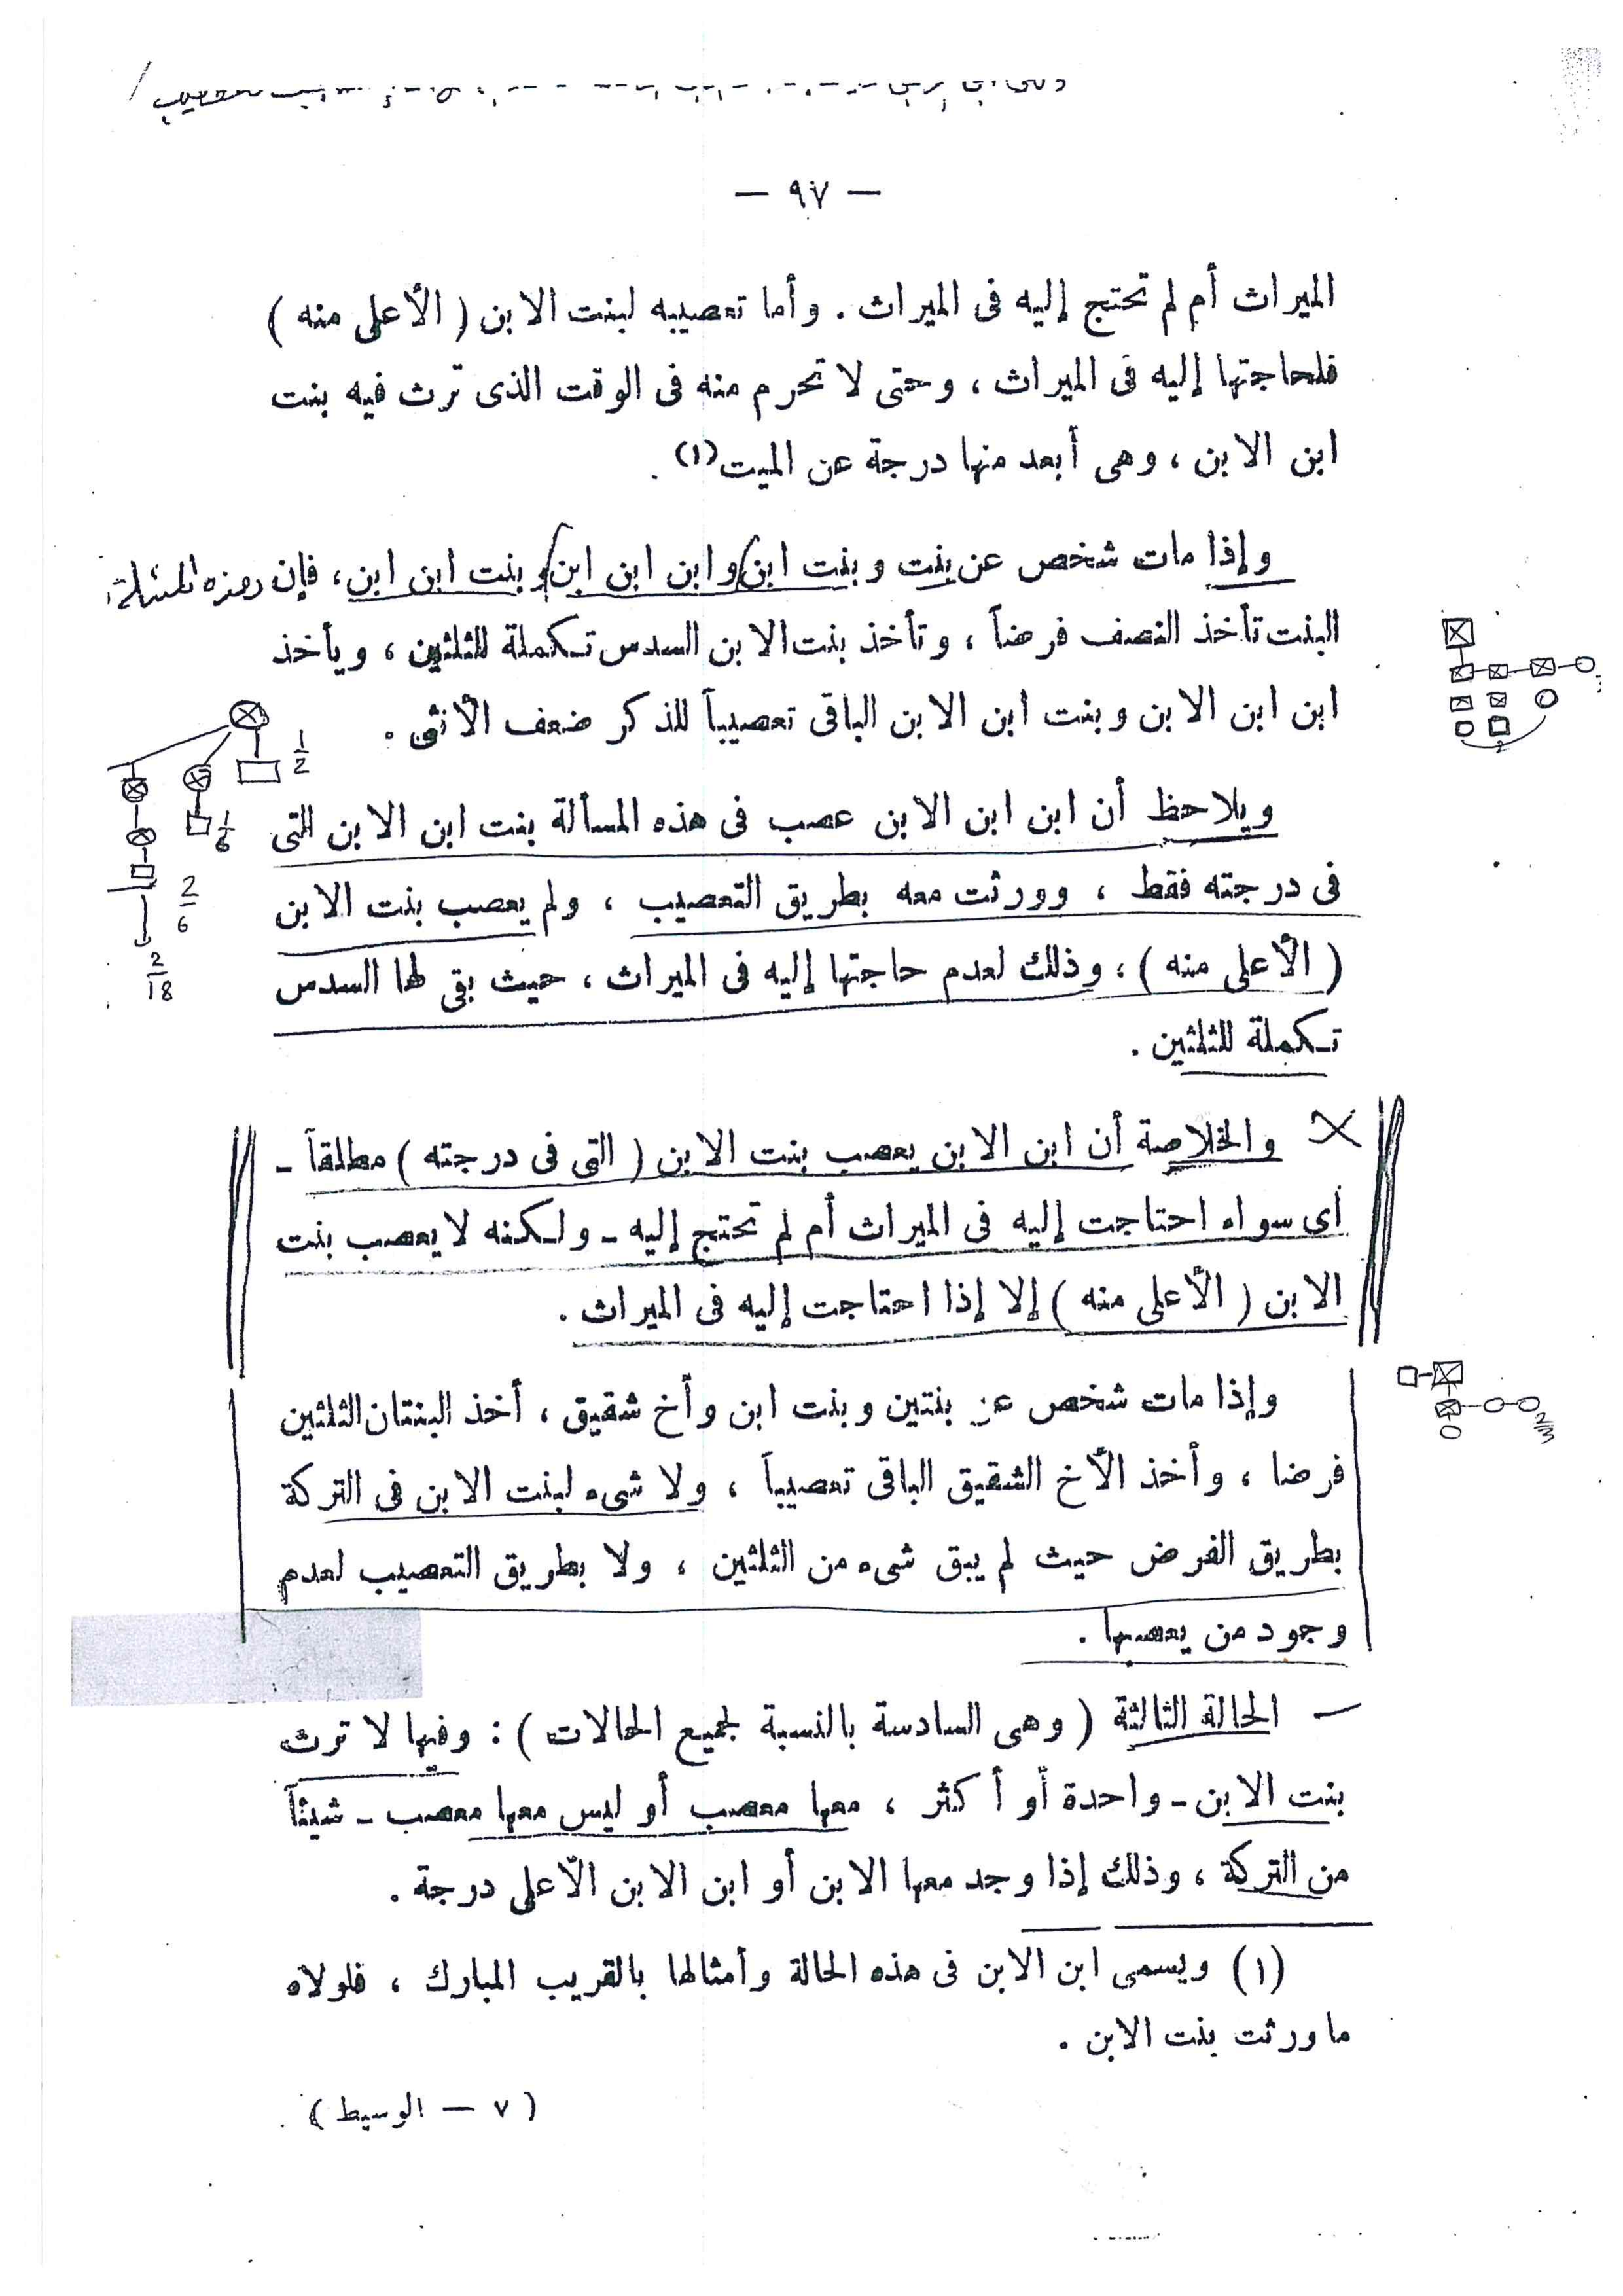 — ٩٧ —
الميراث أم لم تحتج إليه فى الميراث . وأما تعصيبه لبنت الابن ( الأعلى منه )
فلحاجتها إليه فى الميراث ، وحتى لا تحرم منه فى الوقت الذى ترث فيه بنت
ابن الابن ، وهى أبعد منها درجة عن الميت (١) .
وإذا مات شخص عن بنت وبنت ابن وابن ابن ابن وبنت ابن ابن ، فإن
البنت تأخذ النصف فرضاً ، وتأخذ بنت الابن السدس تكملة للثلثين ، ويأخذ
ابن ابن الابن وبنت ابن الابن الباقى تعصيباً للذكر ضعف الأنثى .
1/2
ويلاحظ أن ابن ابن الابن عصب فى هذه المسألة بنت ابن الابن التى
1/6
فى درجته فقط ، وورثت معه بطريق التعصيب ، ولم يعصب بنت الابن
2/6
( الأعلى منه ) ، وذلك لعدم حاجتها إليه فى الميراث ، حيث بقى لها السدس
2/18
تكملة للثلثين .
والخلاصة أن ابن الابن يعصب بنت الابن ( التى فى درجته ) مطلقاً -
أى سواء احتاجت إليه فى الميراث أم لم تحتج إليه - ولكنه لا يعصب بنت
الابن ( الأعلى منه ) إلا إذا احتاجت إليه فى الميراث .
وإذا مات شخص عن بنتين وبنت ابن وأخ شقيق ، أخذ البنتان الثلثين
فرضا ، وأخذ الأخ الشقيق الباقى تعصيباً ، ولا شىء لبنت الابن فى التركة
بطريق الفرض حيث لم يبق شىء من الثلثين ، ولا بطريق التعصيب لعدم
وجود من يعصبها .
الحالة الثالثة ( وهى السادسة بالنسبة لجميع الحالات ) : وفيها لا ترث
بنت الابن - واحدة أو أكثر ، معها معصب أو ليس معها معصب - شيئاً
من التركة ، وذلك إذا وجد معها الابن أو ابن الابن الأعلى درجة .
(١) ويسمى ابن الابن فى هذه الحالة وأمثالها بالقريب المبارك ، فلولاه
ما ورثت بنت الابن .
( ٧ — الوسيط )